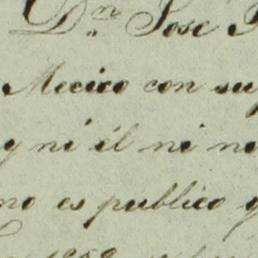 Dn. Jose
Mecico con su
y ni él ni no
no es publico y